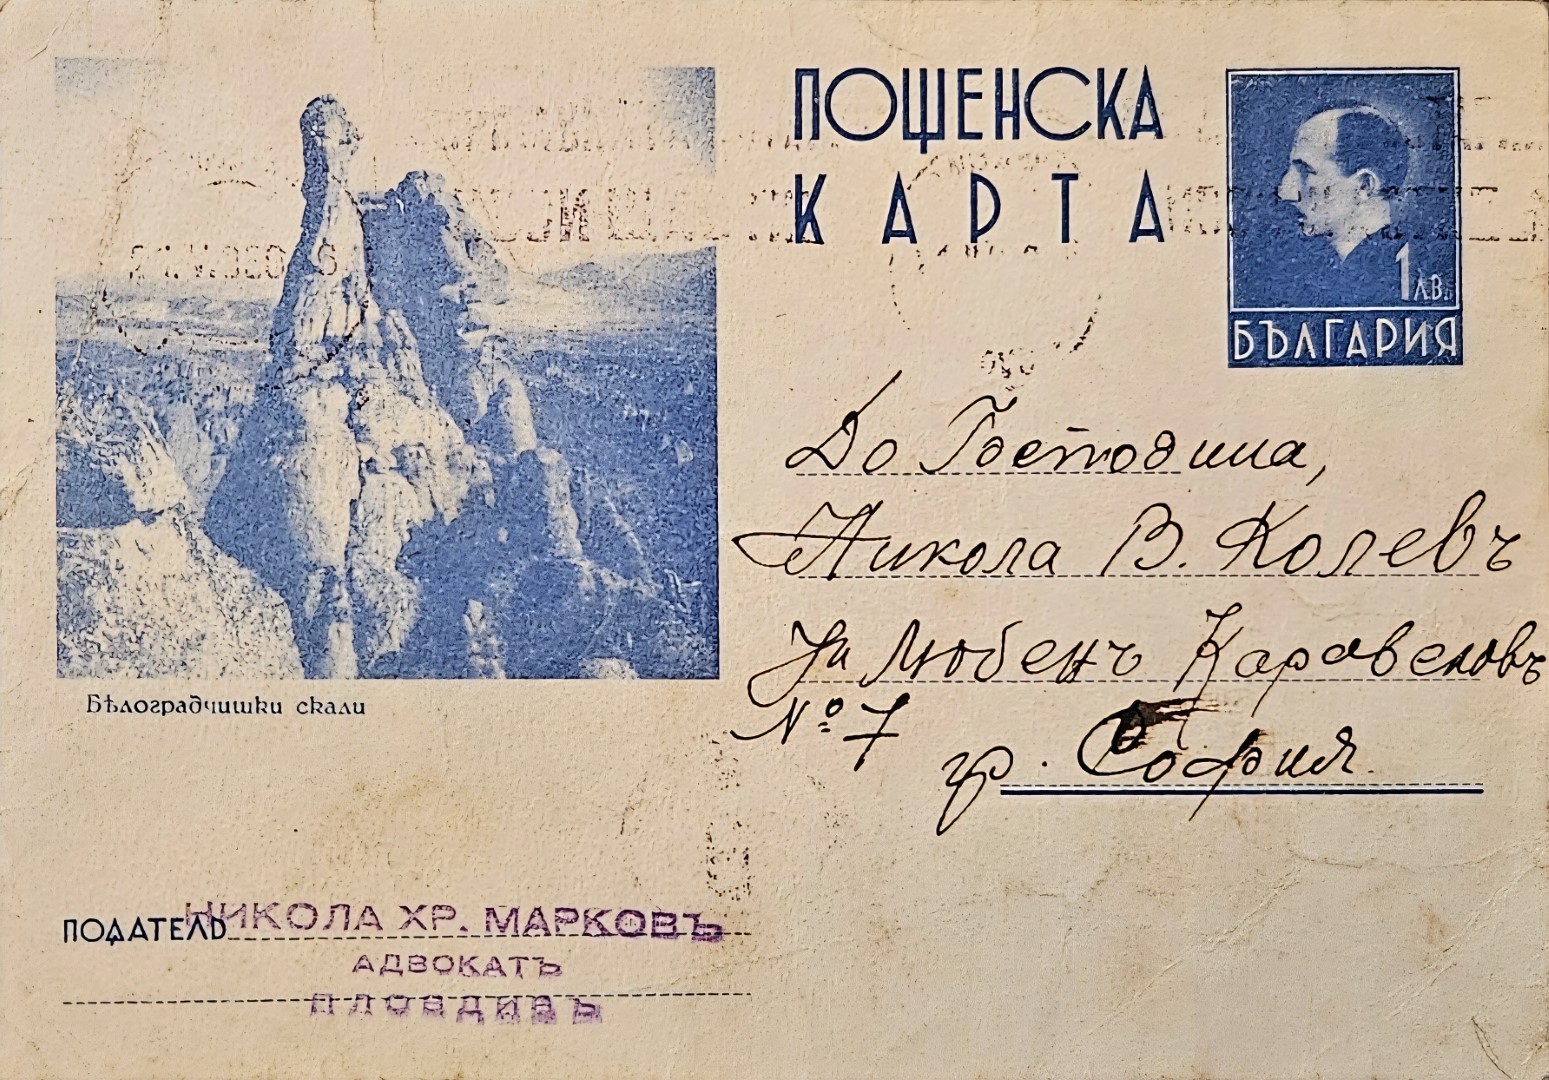 ПОЩЕНСКА
КАРТА
1 ЛВ.
БЪЛГАРИЯ
До Господина,
Никола В. Колевъ
Ул Любенъ Каравеловъ
№ 7
гр. София.
Бѣлоградчишки скали
ПОДАТЕЛЬ
НИКОЛА ХР. МАРКОВЪ
АДВОКАТЪ
ПЛОВДИВЪ